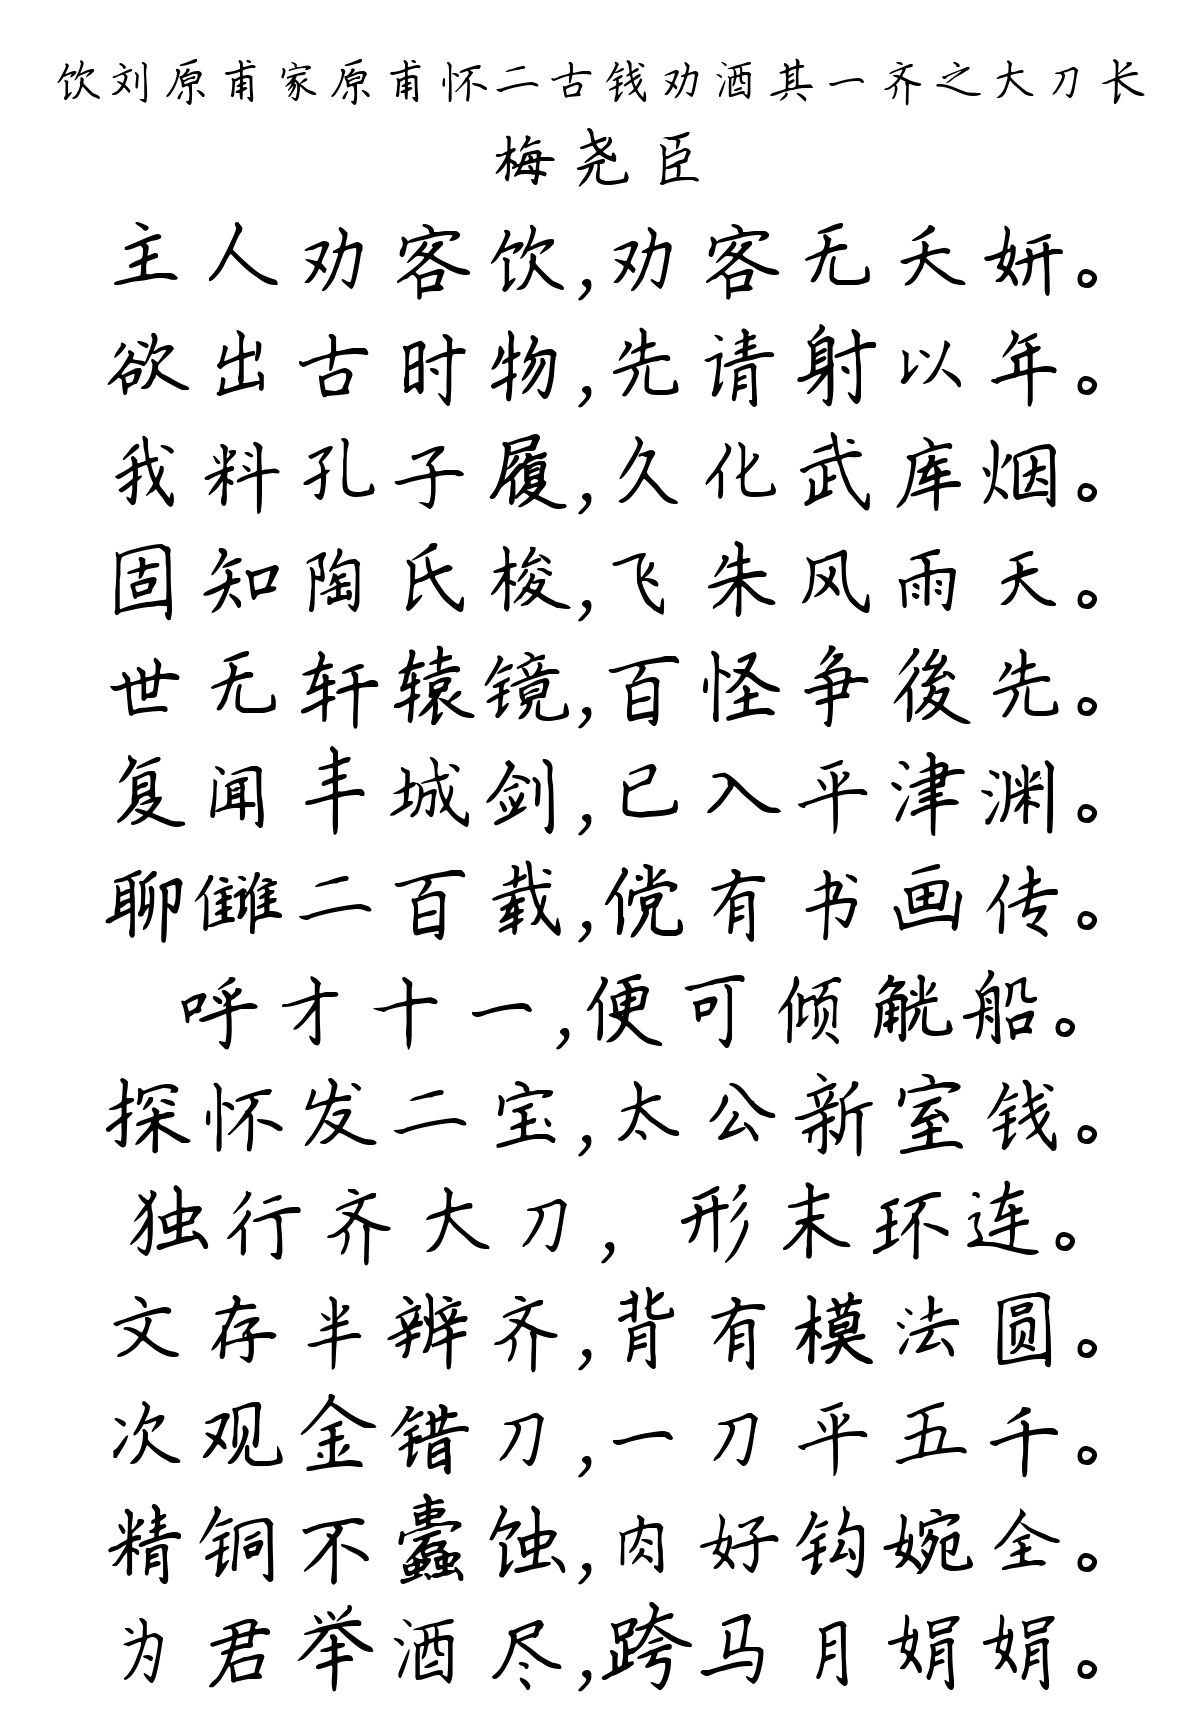 饮刘原甫家原甫怀二古钱劝酒其一齐之大刀长
梅尧臣
主人劝客饮,劝客无夭妍。
欲出古时物,先请射以年。
我料孔子履,久化武库烟。
固知陶氏梭,飞朱风雨天。
世无轩辕镜,百怪争後先。
复闻丰城剑,已入平津渊。
聊雠二百载,傥有书画传。
呼才十一,便可倾觥船。
探怀发二宝,太公新室钱。
独行齐大刀,形末环连。
文存半辨齐,背有模法圆。
次观金错刀,一刀平五千。
精铜不蠹蚀,肉好钩婉全。
为君举酒尽,跨马月娟娟。